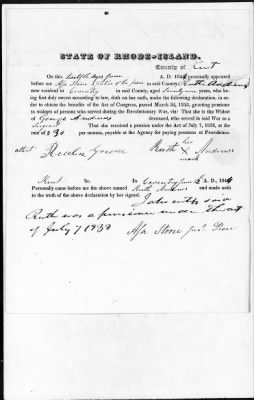 STATE OF RHODE-ISLAND.
County of Kent
On the twelfth day of June A. D. 184 personally appeared
before me Asa Stone Justice of the peace in said County, Ruth Andrews
now resident in Coventry in said County, aged years, who be-
ing first duly sworn according to law, doth on her oath, make the following declaration, in or-
der to obtain the benefits of the Act of Congress, passed March 3d, 1843, granting pensions
to widows of persons who served during the Revolutionary War, viz: That she is the Widow
of George Andrews deceased, who served in said War as a
That she received a pension under the Act of July 7, 1838, at the
rate of $ per annum, payable at the Agency for paying pensions at Providence.
attest Ruth her X Andrews
mark
Kent Sc. In Coventry June A. D., 184
Personally came before me the above named Ruth Andrews and made oath
to the truth of the above declaration by her signed.
said
Ruth was a pensioner under the act
of July 7 1838 Asa Stone Jus. Peace